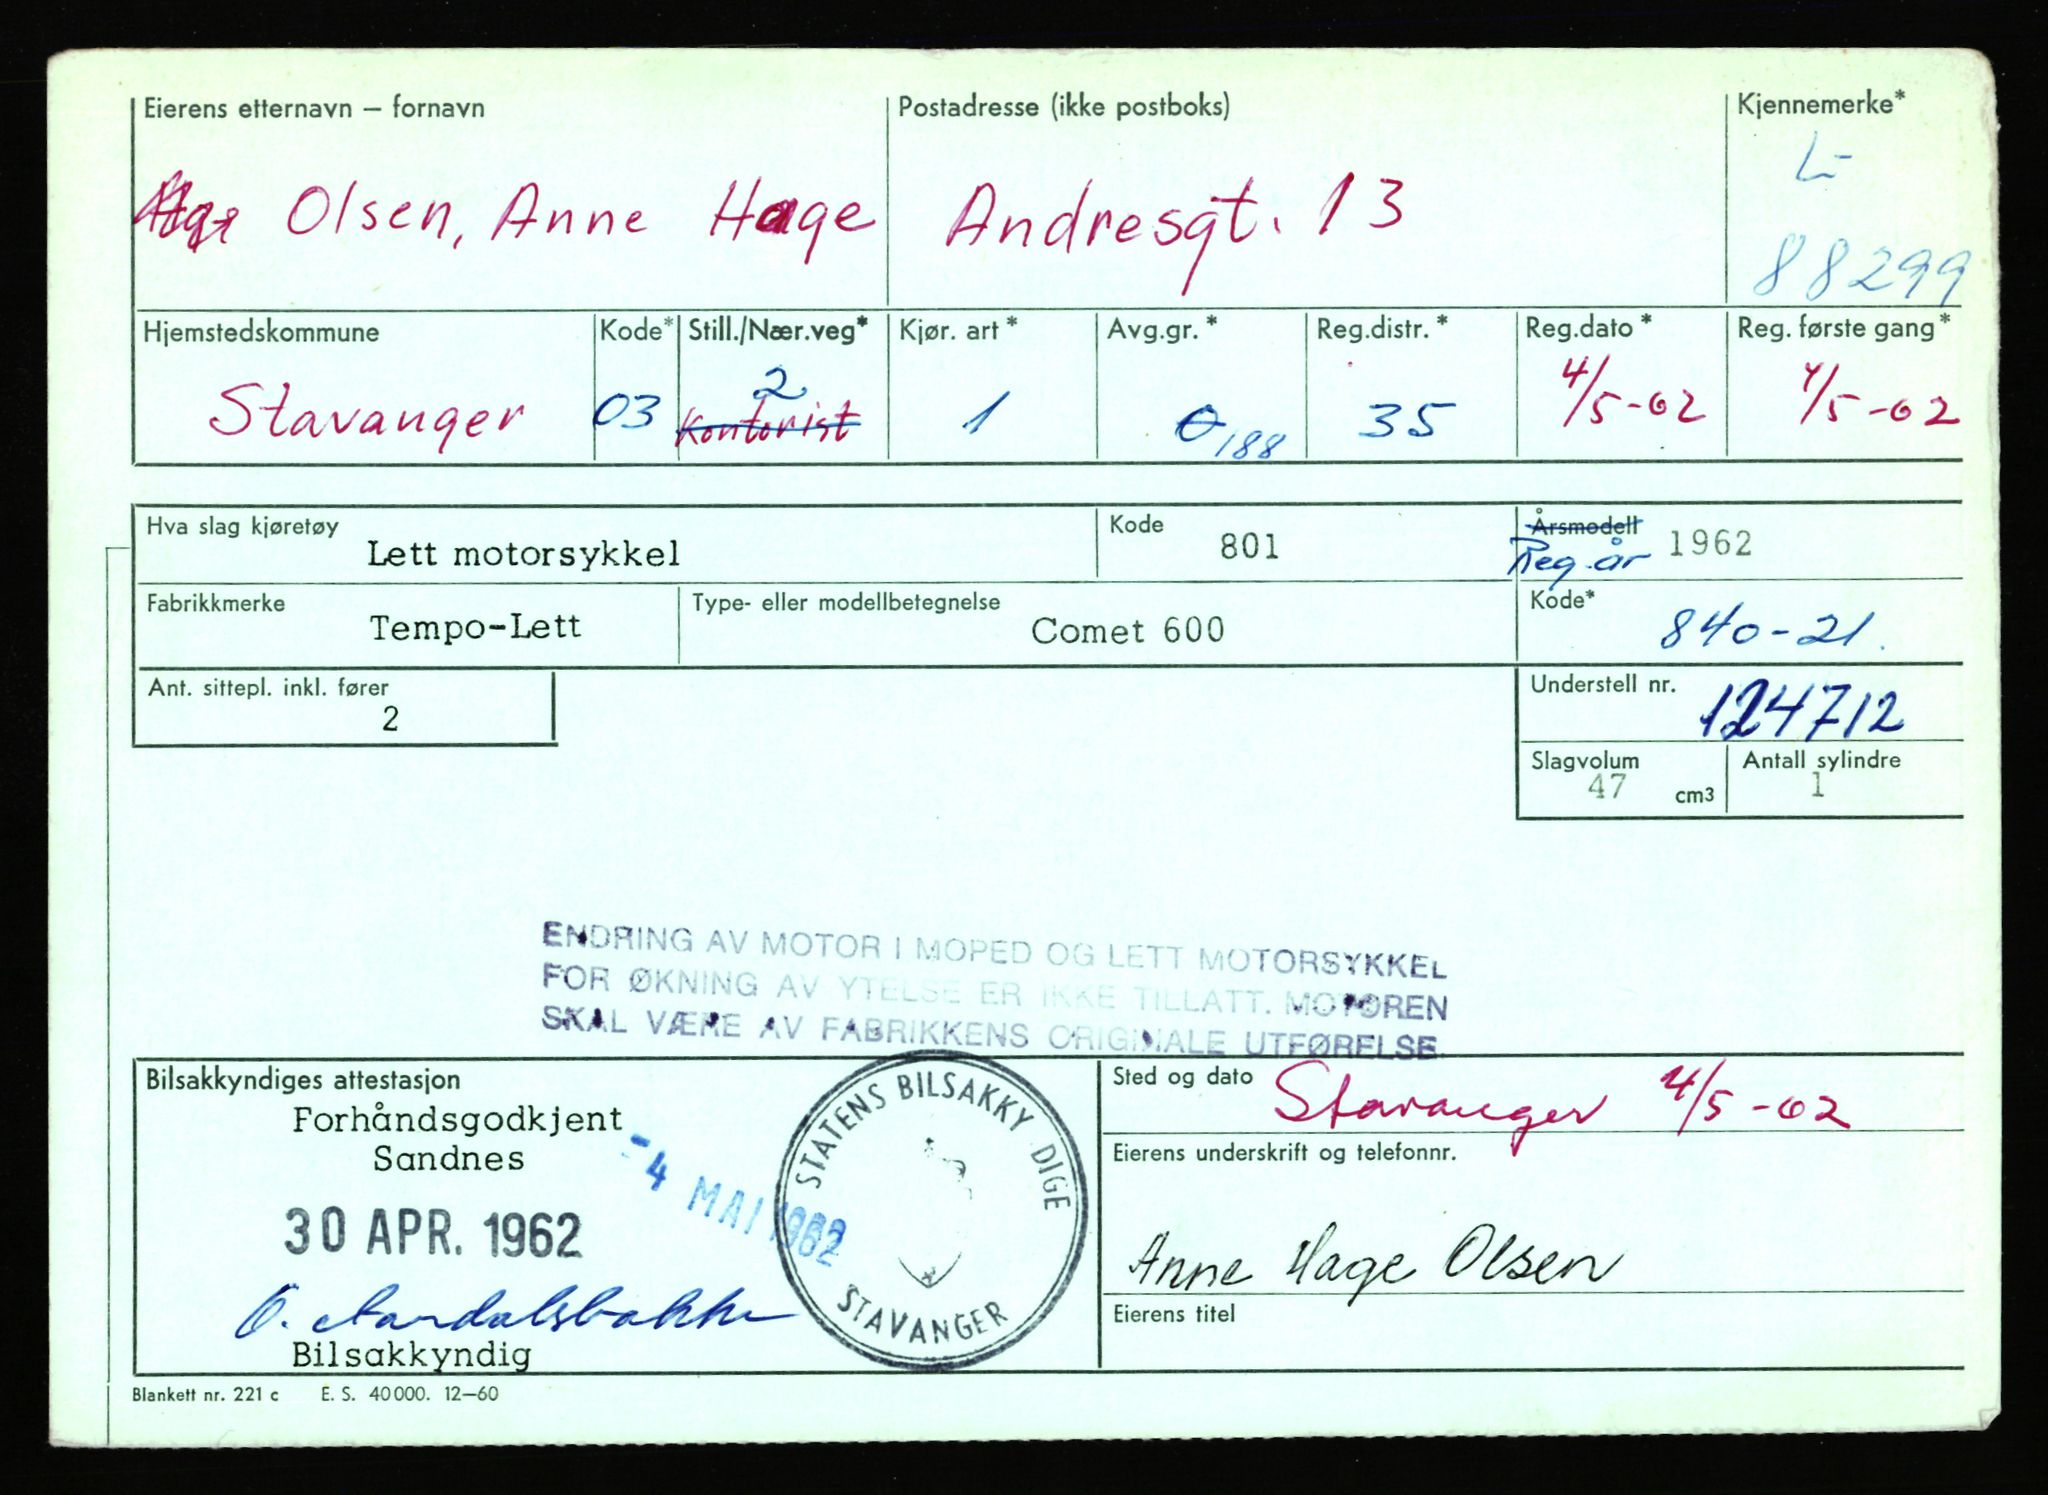 Eierens etternavn – fornavn
Postadresse (ikke postboks)
Kjennemerke*
Olsen, Anne Hage
Andresgt. 13
L-
88299
Hjemstedskommune
Kode*
Still./Nær.veg*
Kjør. art*
Avg.gr.*
Reg.distr.*
Reg.dato*
Reg. første gang*
Stavanger
03
2
Kontorist
1
0
188
35
4/5-62
4/5-62
Hva slag kjøretøy
Lett motorsykkel
Kode
801
Årsmodell
Reg.år
1962
Fabrikkmerke
Tempo-Lett
Type- eller modellbetegnelse
Comet 600
Kode*
840-21.
Ant. sittepl. inkl. fører
2
Understell nr.
124712
Slagvolum
47
cm3
Antall sylindre
1
ENDRING AV MOTOR I MOPED OG LETT MOTORSYKKEL
FOR ØKNING AV YTELSE ER IKKE TILLATT. MOTOREN
SKAL VÆRE AV FABRIKKENS ORIGINALE UTFØRELSE
Bilsakkyndiges attestasjon
Forhåndsgodkjent
Sandnes
30 APR. 1962
-4 MAI 1962
STATENS BILSAKKYNDIGE
STAVANGER
Bilsakkyndig
Sted og dato
Stavanger 4/5-62
Eierens underskrift og telefonnr.
Anne Hage Olsen
Eierens titel
Blankett nr. 221 c E. S. 40000. 12–60